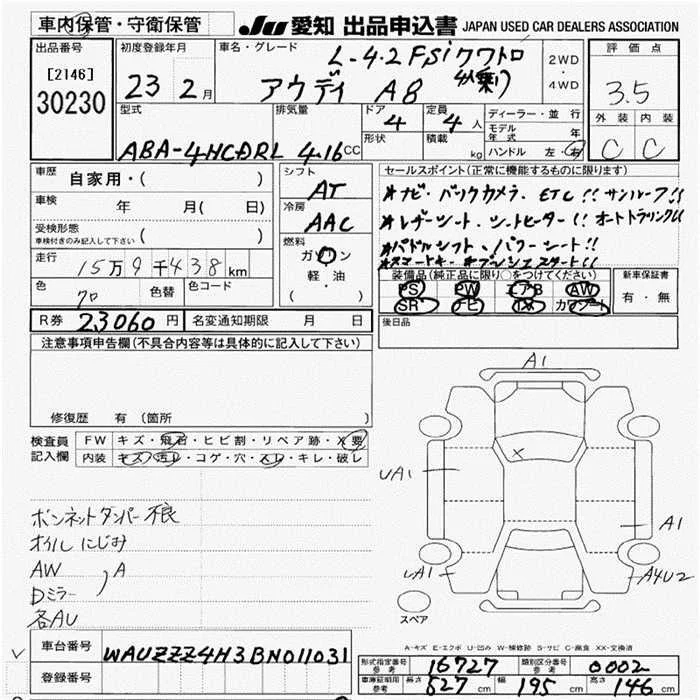 車内保管・守衛保管
JU 愛知 出品申込書 JAPAN USED CAR DEALERS ASSOCIATION
出品番号
[2146]
30230
初度登録年月
23 2月
車名・グレード
L-4.2FSiクワトロ
アウディ A8 4人乗り
2WD
・
4WD
評価点
3.5
外装 内装
C C
型式
ABA-4HCDRL
排気量
4.16CC
ドア
4
形状
定員
4人
積載
kg
ディーラー・並行
モデル年式 年
ハンドル 左・右
車歴 自家用・( )
車検 年 月( 日)
受検形態
車検付きのみ記入して下さい ( )
走行 15万9千438km
色 クロ 色替 色コード
シフト
AT
冷房
AAC
燃料
ガソリン
軽・油
( )
セールスポイント(正常に機能するものに限ります)
*ナビ・バックカメラ、ETC!!サンルーフ!!
*レザーシート、シートヒーター!!オートトランクリッド!!
*パドルシフト、パワーシート!!
*スマートキー*プッシュスタート!!
装備品(純正品に限り○をつけてください)
PS PW エアB AW
SR ナビ TV カワシート
新車保証書
有・無
後日品
R券 23060円 名変通知期限 月 日
注意事項申告欄(不具合内容等は具体的に記入して下さい)
修復歴 有(箇所 )
検査員
記入欄
FW キズ・飛石・ヒビ割・リペア跡・X要
内装 キズ・汚レ・コゲ・穴・スレ・キレ・破レ
ボンネットダンパー不良
オイルにじみ
AW
Dミラー
A
各AU
A1
UA1
A1
A4U2
スペア
A-キズ E-エクボ U-凹み W-補修跡 S-サビ C-腐食 XX-交換済
車台番号 WAUZZZ4H3BN011031
登録番号
形式指定番号
参考
16727
類別区分番号
参考
0002
車庫証明用
参考
長さ 527cm 幅 195cm 高さ 146cm